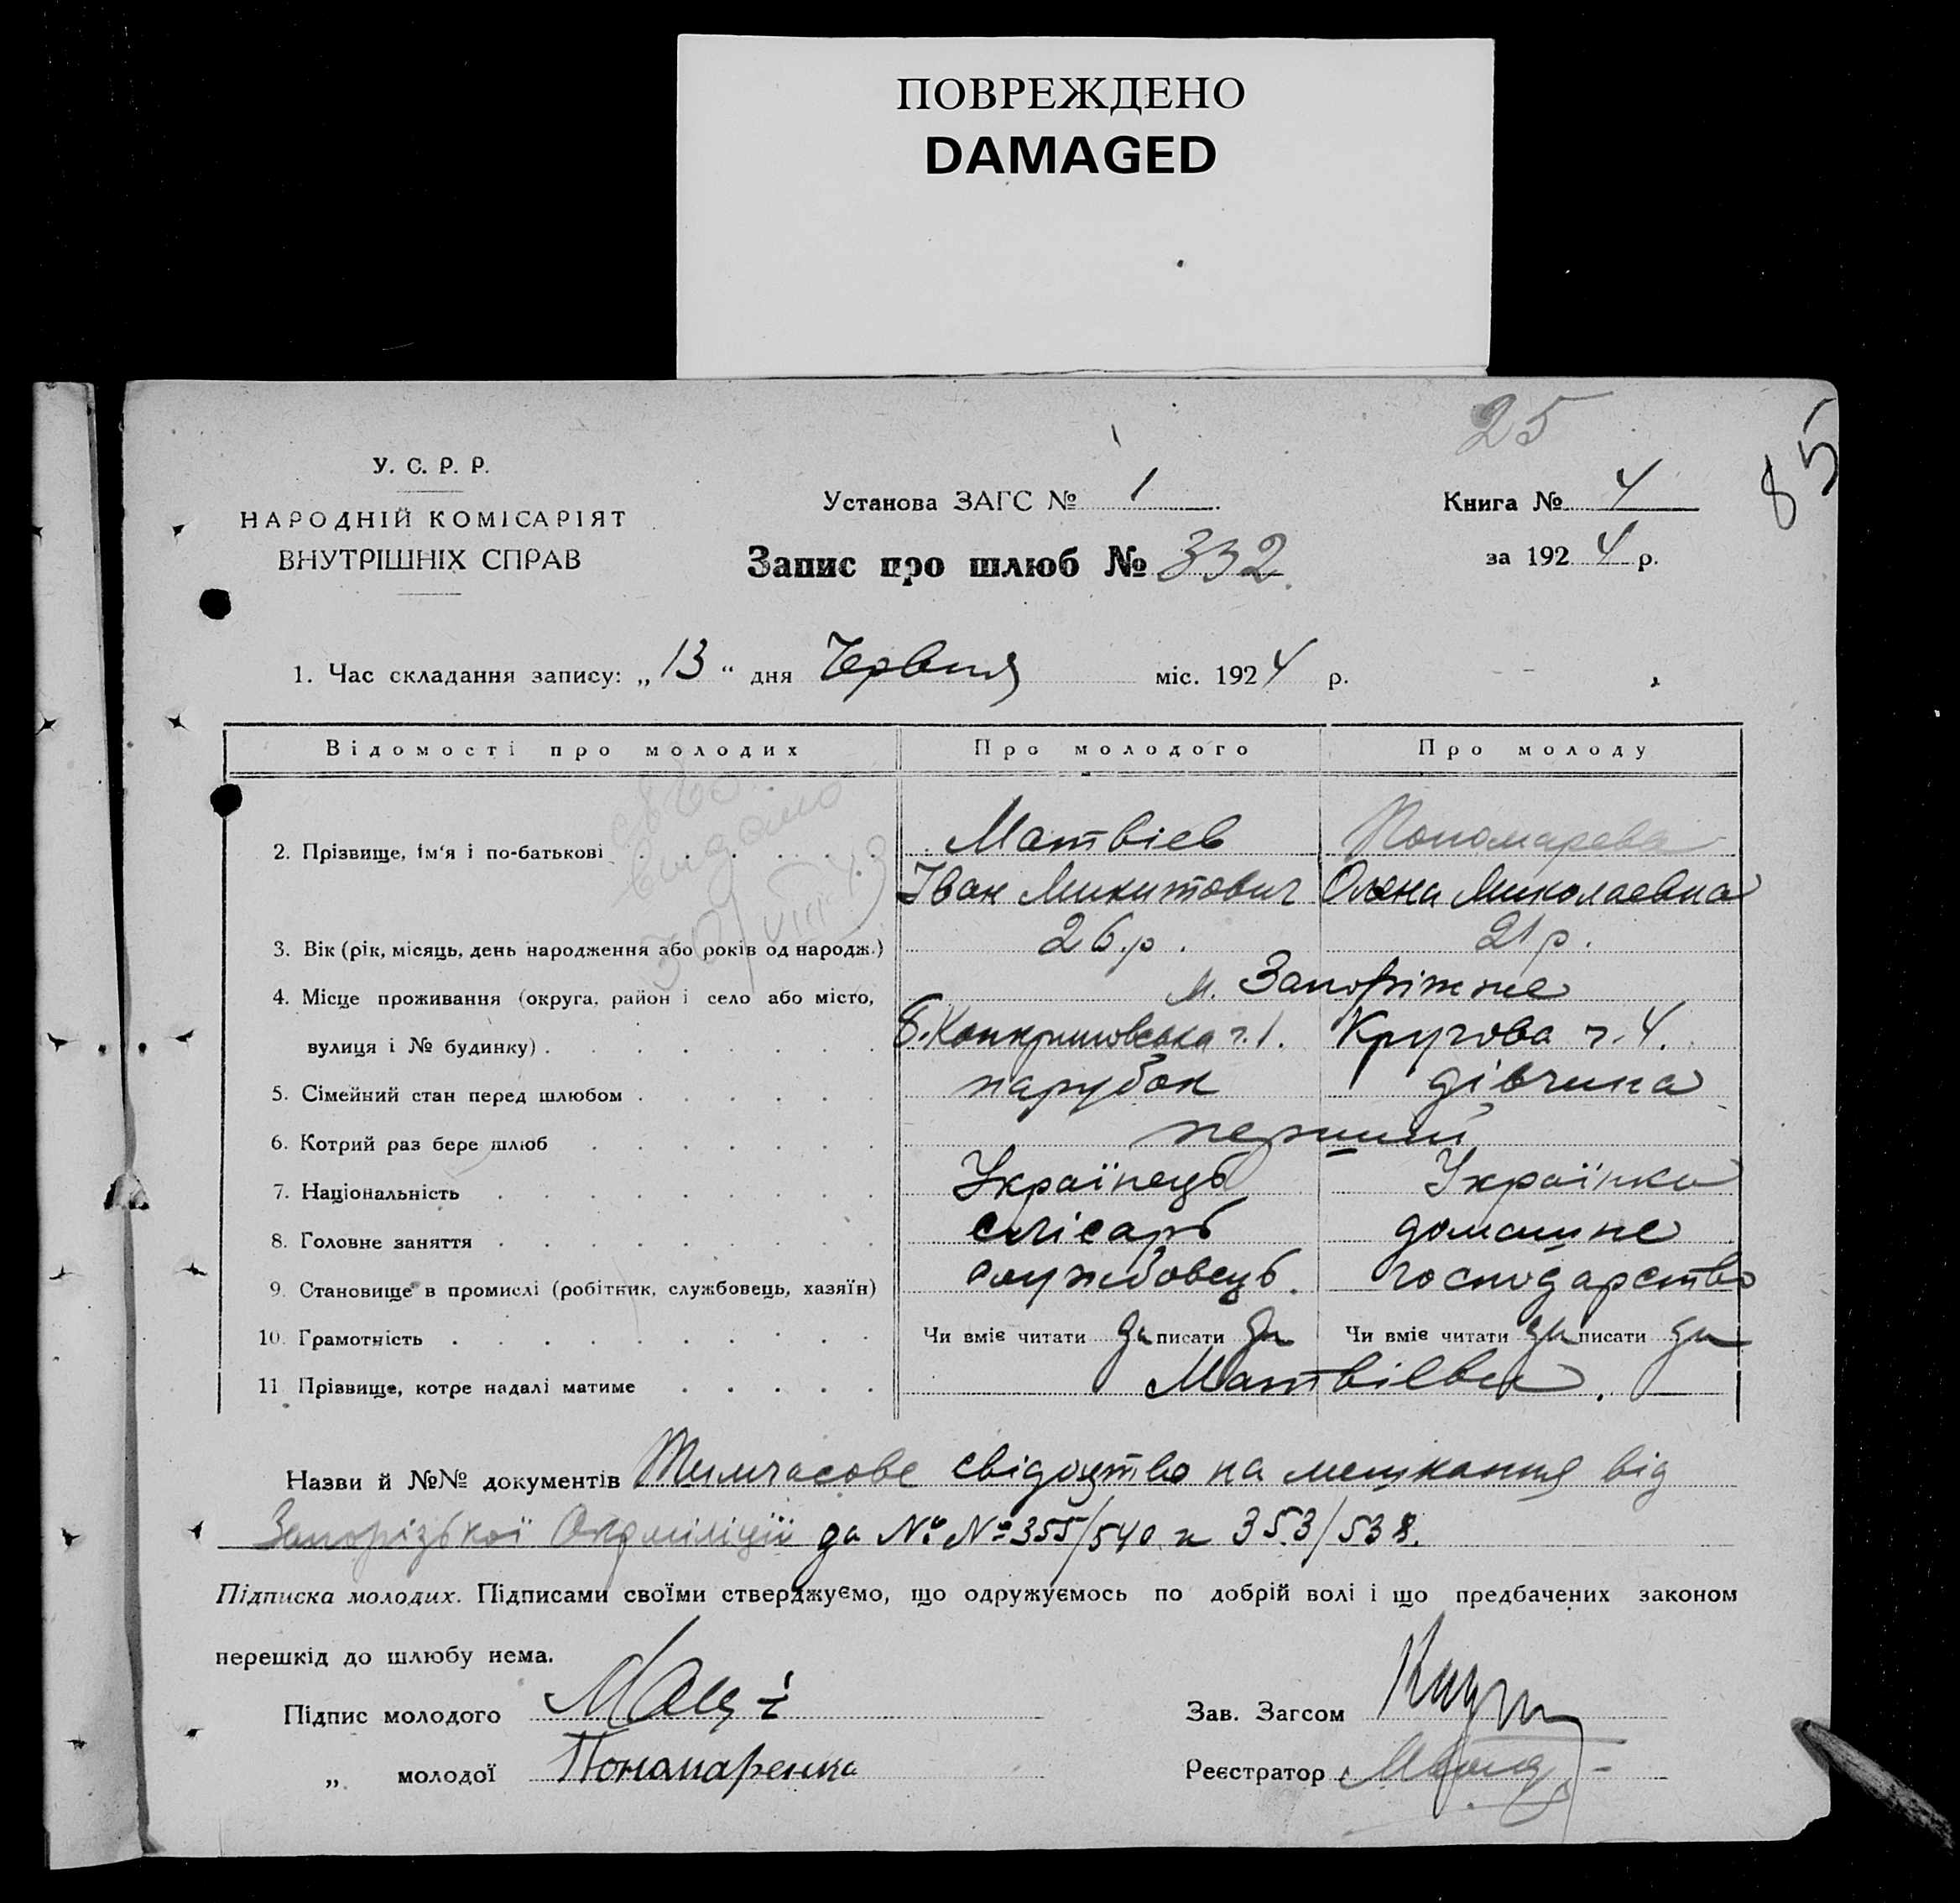 ПОВРЕЖДЕНО
DAMAGED
25
85
У. С. Р. Р.
НАРОДНІЙ КОМІСАРІЯТ
ВНУТРІШНІХ СПРАВ
Установа ЗАГС № 1
Книга № 4
за 1924 р.
Запис про шлюб № 332.
1. Час складання запису: „13“ дня Червня міс. 1924 р.
Відомості про молодих Про молодого Про молоду
2. Прізвище, ім'я і по-батькові Матвіев Пономарева
Іван Микитович Олена Миколаевна
3. Вік (рік, місяць, день народження або років од народж.) 26.р. 21 р.
4. Місце проживання (округа, район і село або місто, м. Запоріжже
вулиця і № будинку) ч.1. Кругова ч.4.
5. Сімейний стан перед шлюбом парубок дівчина
6. Котрий раз бере шлюб перший
7. Національність Українець Українка
8. Головне заняття слісарь домашне
9. Становище в промислі (робітник, службовець, хазяїн) службовець. господарство
10. Грамотність Чи вміє читати да писати да Чи вміє читати да писати да
11 Прізвище, котре надалі матиме Матвіева.
видано
VIII
Назви й №№ документів Тимчасове свідоцтво на мешкання від
Запорізької Окрміліції да №№ 355/540 и 353/538.
Підписка молодих. Підписами своїми стверджуємо, що одружуємось по добрій волі і що предбачених законом
перешкід до шлюбу нема.
Підпис молодого
Зав. Загсом
„ молодої Пономаренка
Реєстратор